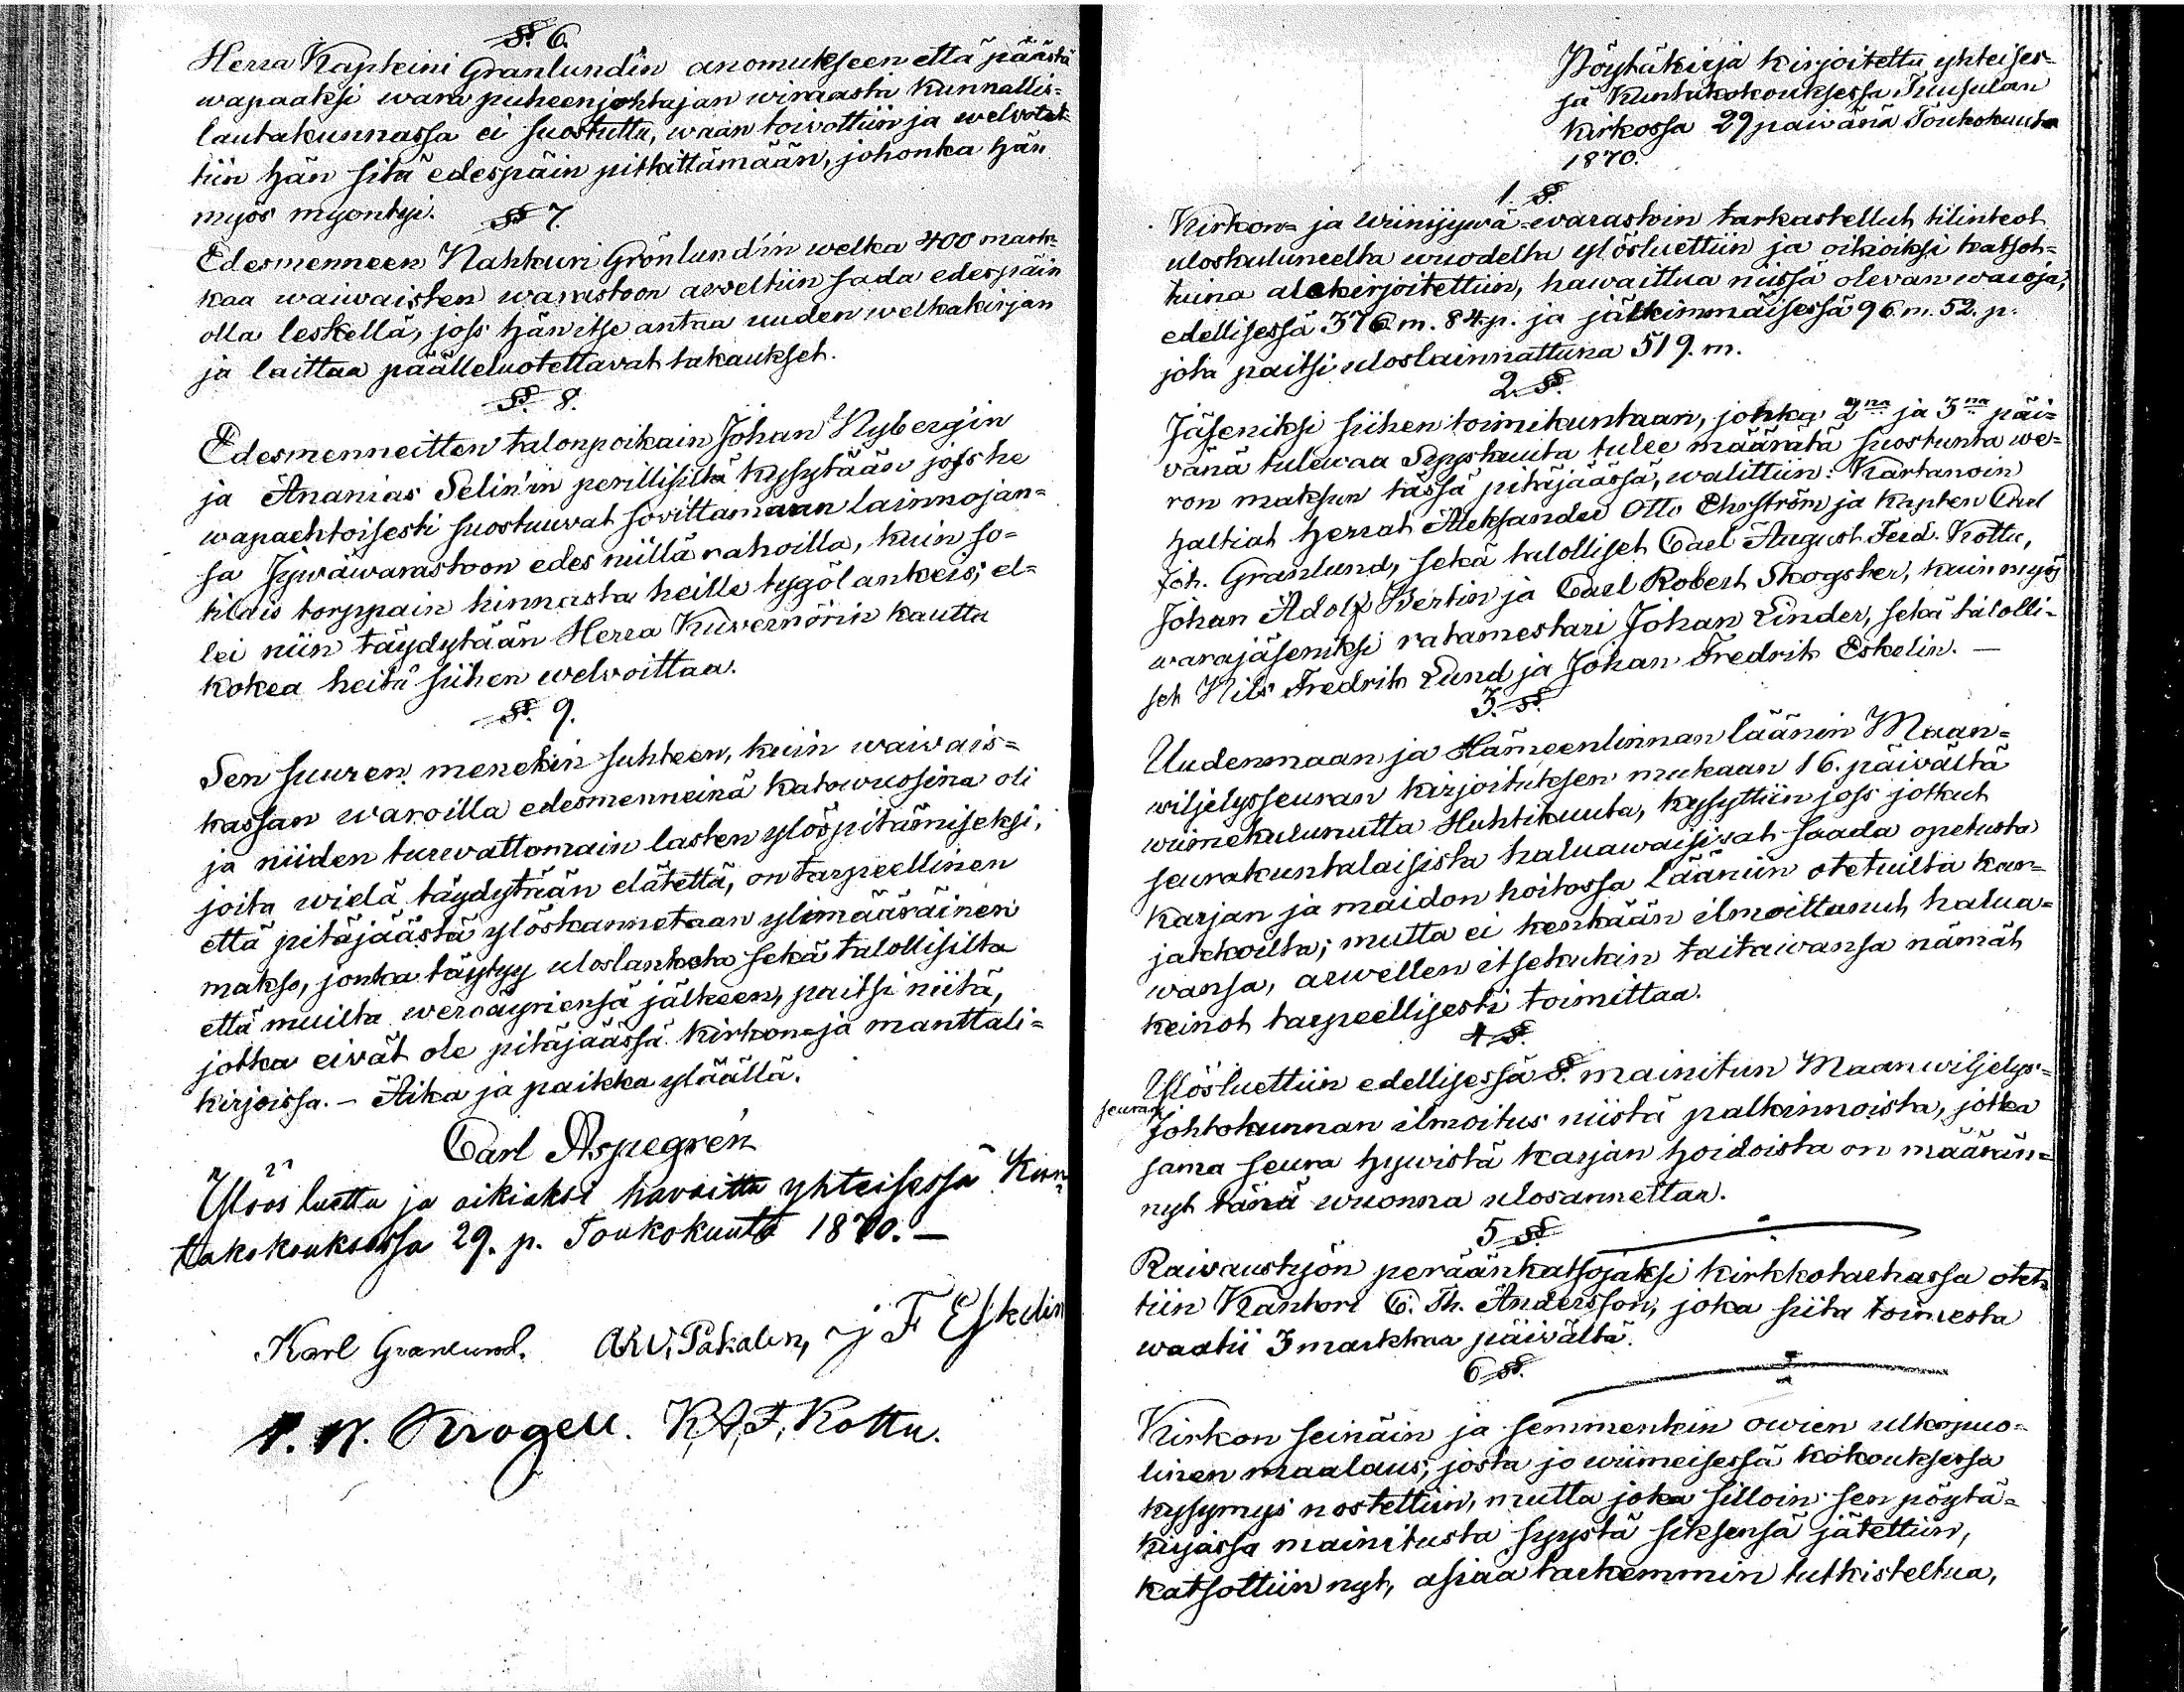 §. 6.
Herra Kapteini Granlund'in anomukseen että päästä
wapaaksi wara puheenjohtajan wiraasta Kunnallis=
lautakunnassa ei suostuttu, waan toivottiin ja welvotet=
tiin hän sitä edespäin pitkittämään, johonka hän
myös myöntyi.
§ 7.
Edesmenneen Nahkuri Grönlund'in welka 400 mark=
kaa waiwaisten warastoon arveltiin sada edespäin
olla leskellä, joss hän itse antaa uuden welkakirjan
ja laittaa päälleluotettavat takaukset.
§. 8.
Edesmenneitten talonpoikain Johan Nyberg'in
ja Ananias Selin'in perillisiltä kysytään joss he
wapaehtoisesti suostuuvat sovittamaan lainnojan=
sa Jywäwarastoon edes niillä rahoilla, kuin so=
tilais torppain hinnasta heille tygölankeis; el=
lei niin täydytään Herra Kuvernörin kautta
kokea heitä siihen welvoittaa.
§. 9.
Sen suuren menekin suhteen, kuin waivais=
kassan waroilla edesmenneinä katowuosina oli
ja niiden turwattomain lasten ylöspitämiseksi,
joita wielä täydytään elätettä, on tarpeellinen
että pitäjäästä ylöskannetaan ylimääräinen
makso, jonka täytyy uloslanketa sekä talollisilta
että muilta weroäyriensä jälkeen, paitsi niitä,
jotka eivät ole pitäjäässä kirkon= ja manttali=
kirjoissa. – Aika ja paikka ylläällä.
Carl Aspegrén
Ylöös luettu ja oikiaksi havaittu yhteisessä Kun=
takokouksessa 29. p. Toukokuuta 1870. –
Karl Granlund. AKV, Pakalen, j F Eskelin
K, A, F, Kottu.
Pöytäkirja kirjoitettu yhteises=
sä Kuntakokouksessa Tuusulan
kirkossa 29 päiwänä Toukokuuta
1870.
1. §.
Kirkon= ja wiinijywä=warastoin tarkastellut tilinteot
uloskuluneelta wuodelta ylösluettiin ja oikioiksi katsot=
tuina alekirjoitettiin, hawaittua niissä olevan waroja,
edellisessä 376 m. 84. p. ja jälkimmäisessä 96 m. 52. p.
jota paitsi uloslainnattuna 519. m.
2. §.
Jäseniksi siihen toimikuntaan, jonka 2na ja 3na päi=
vänä tulewaa Syyskuuta tulee määrätä suostunta we=
ron maksun tässä pitäjäässä, walittiin: Kartanoin
haltiat Herrat Aleksander Otto Ehnström ja Kapten Carl
Joh. Granlund, sekä talolliset Carl August Ferd. Kottu,
Johan Adolf Bertin ja Carl Robert Skogster, kuin myös
warajäseniksi ratamestari Johan Linder, sekä talolli=
set Nils Fredrik Lund ja Johan Fredrik Eskelin. –
3. §.
Uudenmaan ja Hämeenlinnan läänin Maan=
wiljelysseuran kirjoituksen mukaan 16. päivältä
wiimekulunutta Huhtikuuta, kysyttiin joss jotkut
seurakuntalaisista haluawaisivat saada opetusta
Karjan ja maidon hoitossa Lääniin otetuilta kar=
jakkoilta; mutta ei kenkään ilmoittanut halua=
wansa, arwellen itsekukin taitawansa nämät
keinot tarpeellisesti toimittaa.
4 §.
Ylösluettiin edellisessä §. mainitun Maanwiljelys=
seuran Johtokunnan ilmoitus niistä palkinnoista, jotka
sama seura hywistä karjan hoidoista on määrän=
nyt tänä wuonna ulosannettaa.
5 §.
Raivaustyön peräänkatsojaksi kirkkotarhassa otet=
tiin Kanttori C. Th. Andersson, joka siitä toimesta
waatii 3 markkaa päivältä.
6 §.
Kirkon seinäin ja semmenkin owien ulkopuo=
linen maalaus, josta jo wiimeisessä kokouksessa
kysymys nostettiin, mutta joka silloin sen pöytä=
kirjassa mainitusta syystä siksensä jätettiin,
katsottiin nyt, asiaa tarkemmin tutkisteltua,